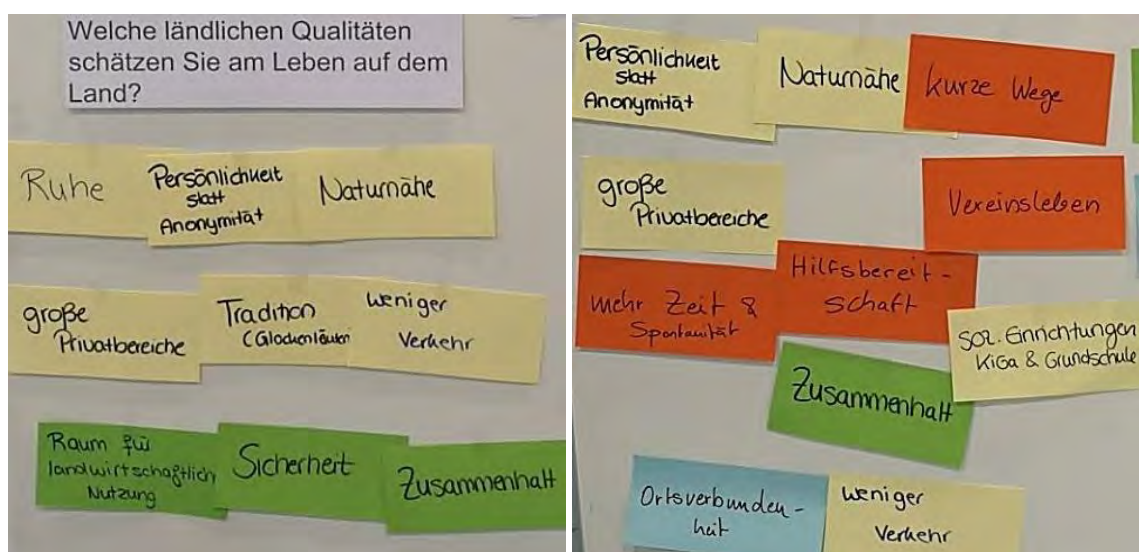 Welche ländlichen Qualitäten
schätzen Sie am Leben auf dem
Land?
Ruhe
Persönlichkeit
statt
Anonymität
Naturnähe
große
Privatbereiche
Tradition
(Glockenläuten
weniger
Verkehr
Raum für
landwirtschaftlich
Nutzung
Sicherheit
Zusammenhalt
Persönlichkeit
statt
Anonymität
Naturnähe
kurze Wege
große
Privatbereiche
Vereinsleben
mehr Zeit &
Spontanität
Hilfsbereit-
schaft
soz. Einrichtungen
KiGa & Grundschule
Zusammenhalt
Ortsverbunden-
heit
weniger
Verkehr